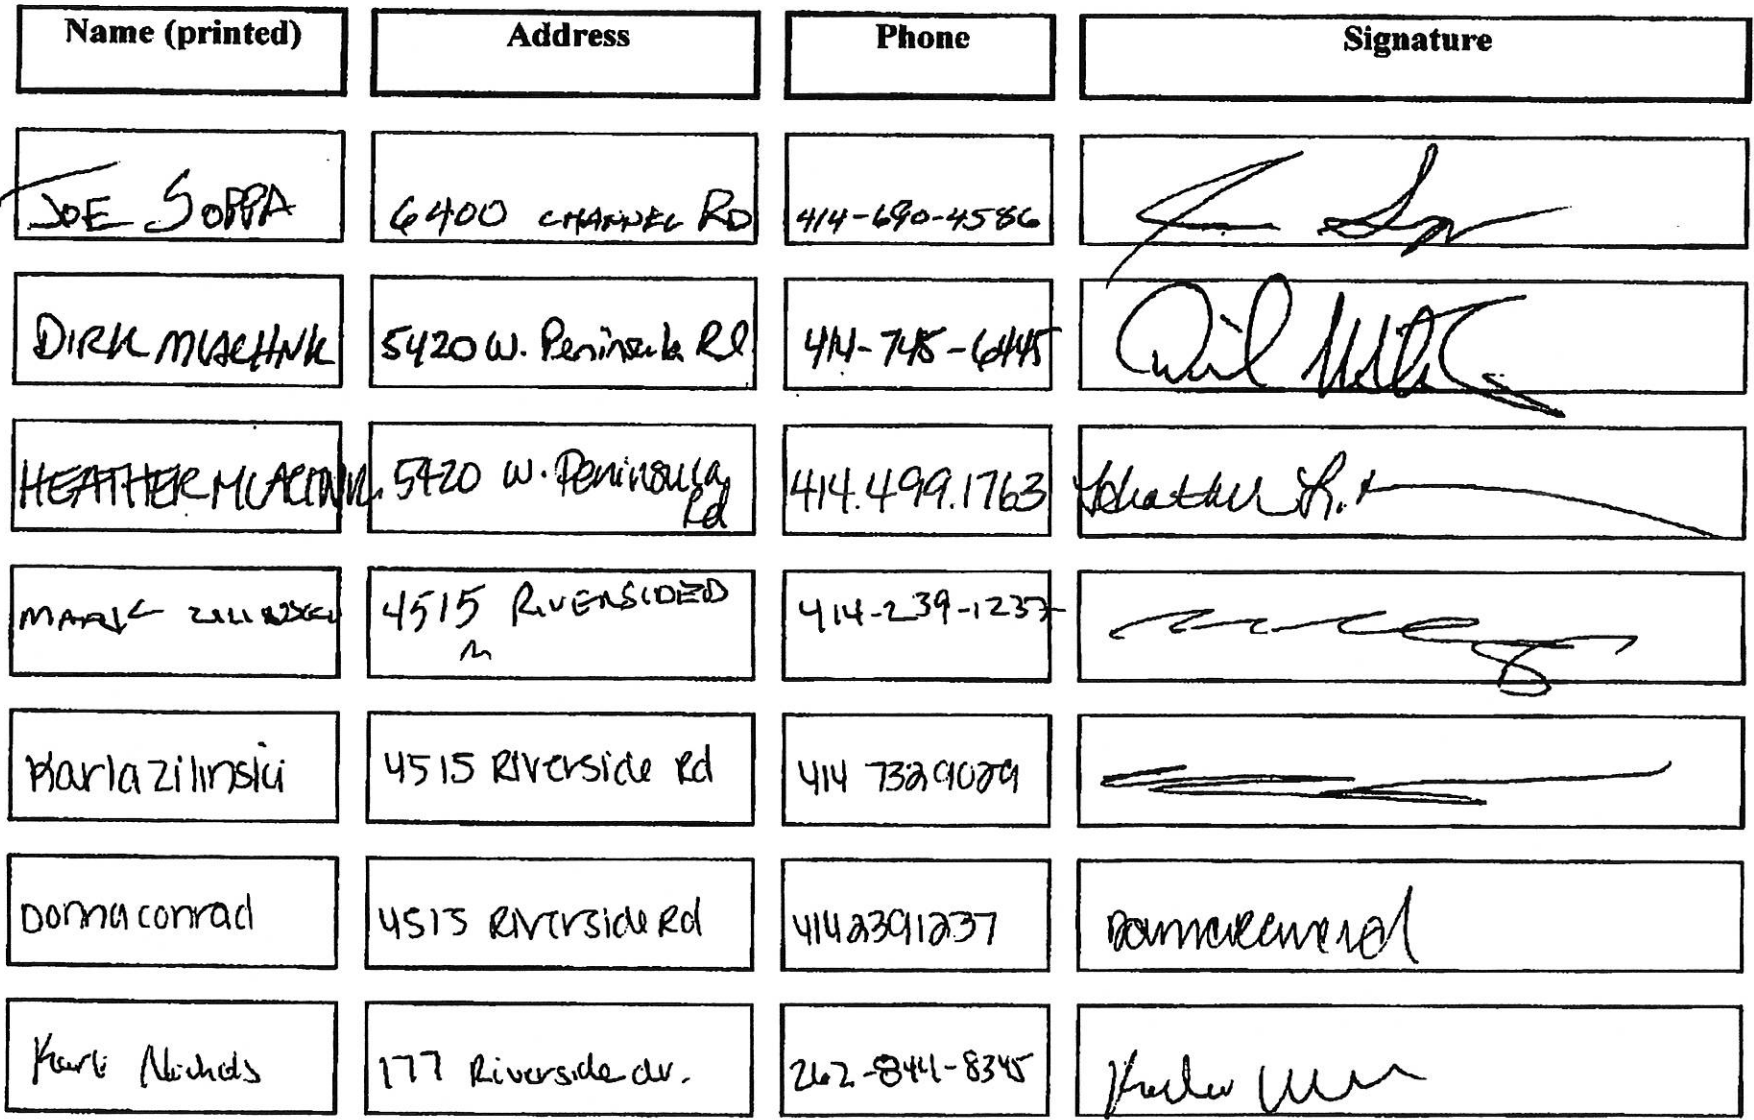 Name (printed) Address Phone Signature
JOE SOPPA 6400 CHANNEL RD 414-690-4586
DIRK 5420 W. Peninsula Rd 414-745-6445
HEATHER 5420 W. Peninsula 414.499.1763 Heather
Rd
MARK 4515 RIVERSIDE 414-239-1237
Karla Zilinski 4515 Riverside Rd 414 7329029
Donna Conrad 4515 Riverside Rd 4142391237 Donna Conrad
Nichols 177 Riverside dr. 262-844-8345